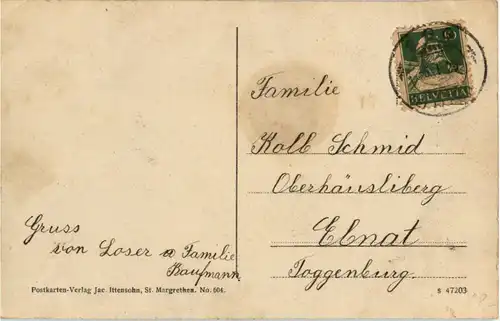 HELVETIA
Familie
Kolb Schmid
Oberhäusliberg
Ebnat
Toggenburg.
Gruss
von Loser u Familie
Kaufmann
Postkarten-Verlag Jac. Ittensohn, St. Margrethen. No. 604.
s 47203